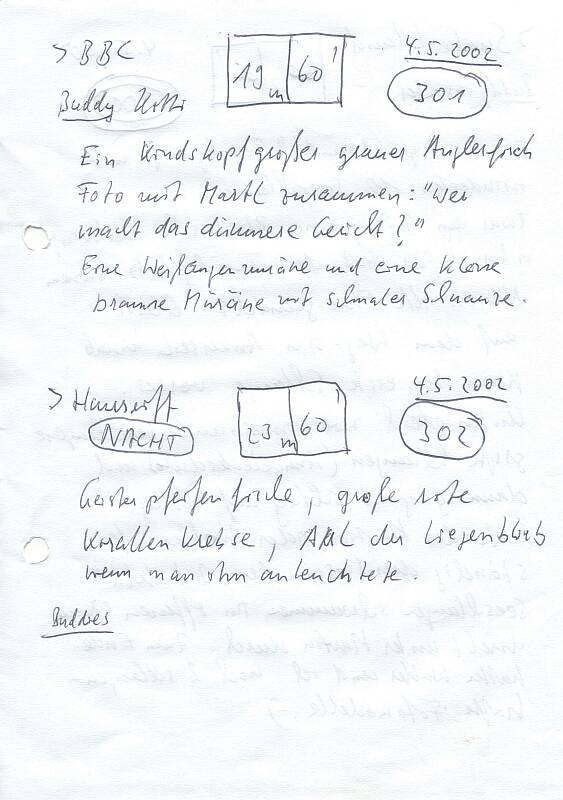 > BBC
19 m 60'
4.5.2002
301
Buddy
Ein Kindskopfgroßer grauer Anglerfisch
Foto mit Martl zusammen: "Wer
macht das dümmere Gesicht?"
Eine Weißaugenmuräne und eine kleine
braune Muräne mit schmaler Schnauze.
> Hausriff
NACHT
23 m 60'
4.5.2002
302
Geisterpfeifenfische, große rote
Korallenkrebse, AAL der liegenblieb
wenn man ihn anleuchtete.
Buddies